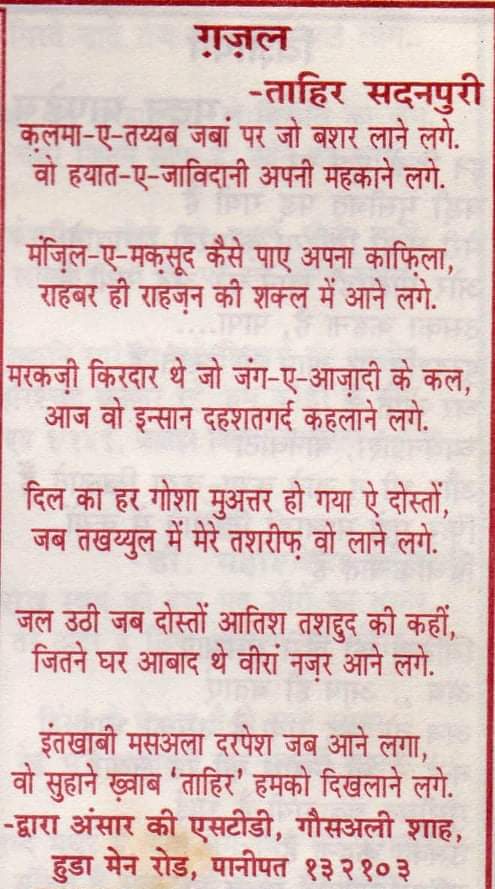 ग़ज़ल
-ताहिर सदनपुरी
क़लमा-ए-तय्यब जबां पर जो बशर लाने लगे.
वो हयात-ए-जाविदानी अपनी महकाने लगे.
मंज़िल-ए-मक़सूद कैसे पाए अपना काफ़िला,
राहबर ही राहज़न की शक्ल में आने लगे.
मरकज़ी किरदार थे जो जंग-ए-आज़ादी के कल,
आज वो इन्सान दहशतगर्द कहलाने लगे.
दिल का हर गोशा मुअत्तर हो गया ऐ दोस्तों,
जब तखय्युल में मेरे तशरीफ़ वो लाने लगे.
जल उठी जब दोस्तों आतिश तशद्दुद की कहीं,
जितने घर आबाद थे वीरां नज़र आने लगे.
इंतखाबी मसअला दरपेश जब आने लगा,
वो सुहाने ख़्वाब 'ताहिर' हमको दिखलाने लगे.
-द्वारा अंसार की एसटीडी, गौसअली शाह,
हुडा मेन रोड, पानीपत १३२१०३